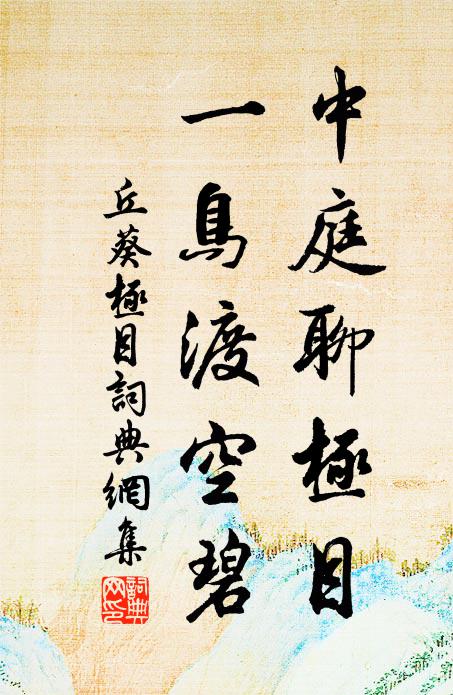 中庭聊極目
一鳥渡空碧
丘葵極目詞典網集
詞典網印